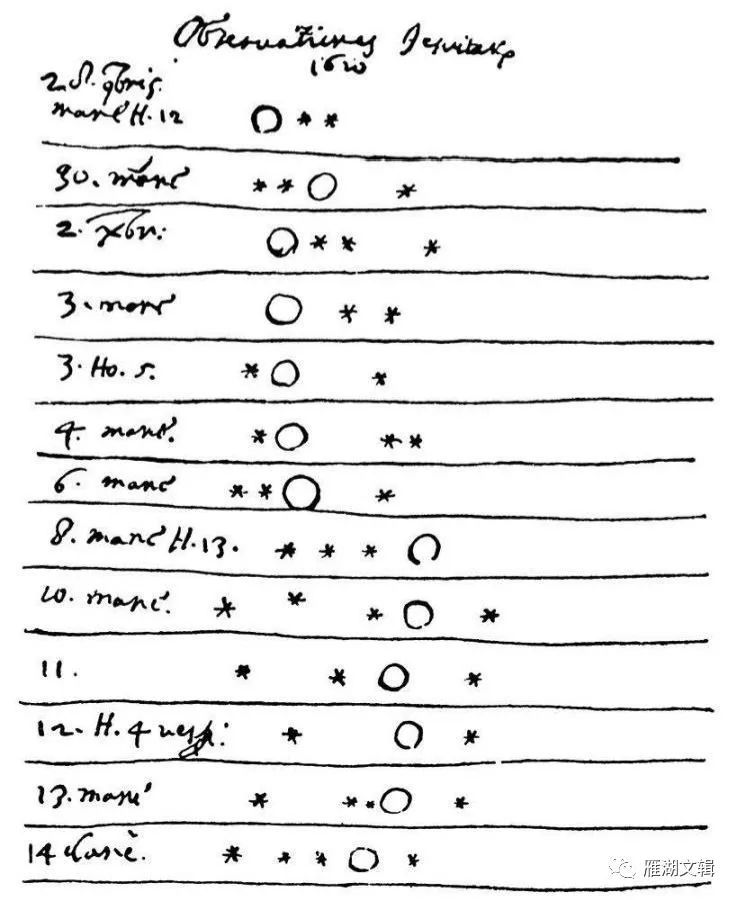 Observationes Jesuitarum
1610
2. J. 9bris.
mane H. 12
30. mane
2. Xbr:
3. mane
3. Ho. 5.
4. mane.
6. mane
8. mane H. 13.
10. mane.
11.
12. H. 4 vesp:
13. mane
14 mane.
雁湖文辑